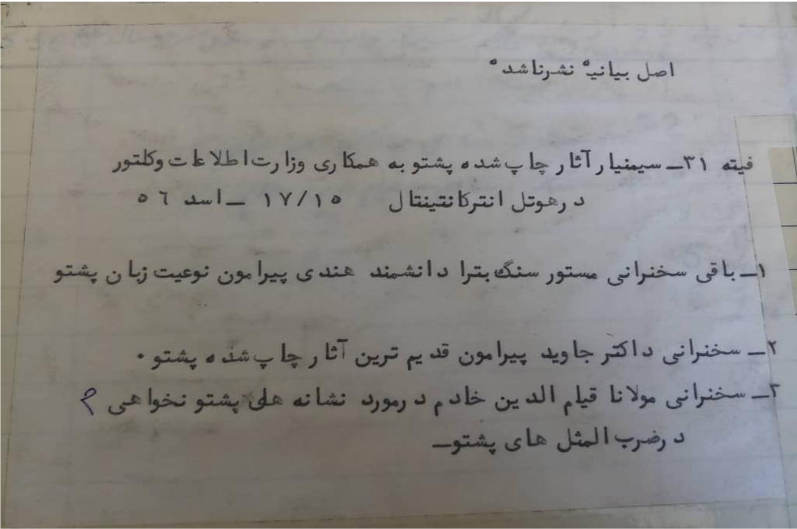 اصل بیانیه نشرناشده
فیته ۳۱ــ سیمنیار آثار چاپ شده پشتو به همکاری وزارت اطلاعات وکلتور
درهوتل انترکانتیننتال ۱۷/۱۵ ــ اسد ۵۶
۱ــ باقی سخنرانی مستور سنگ بترا دانشمند هندی پیرامون نوعیت زبان پشتو
۲ــ سخنرانی داکتر جاوید پیرامون قدیم ترین آثار چاپ شده پشتو .
۳ــ سخنرانی مولانا قیام الدین خادم درمورد نشانه های پشتو نخواهی ؟
درضرب المثل های پشتوــ